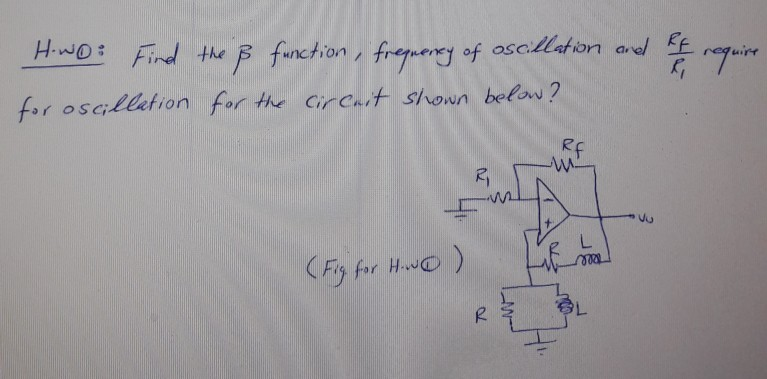 H.w①: Find the β function, frequency of oscillation and Rf/R1 require
for oscillation for the circuit shown below?
Rf
R1
-
+
Vo
R L
(Fig for H.w①)
R L